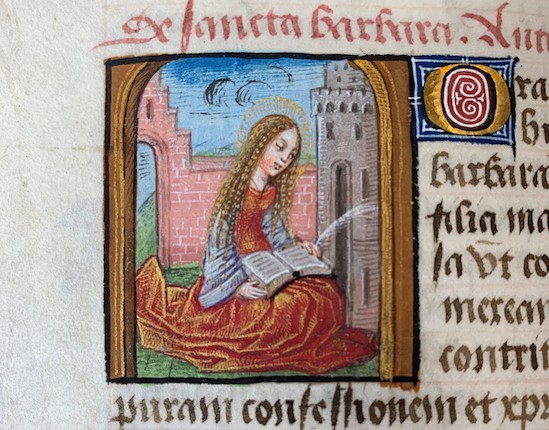 De sancta barbara. Ant
Ora
barbara
filia ma
sa vt co
merear
contrit
puram confessionem et xp